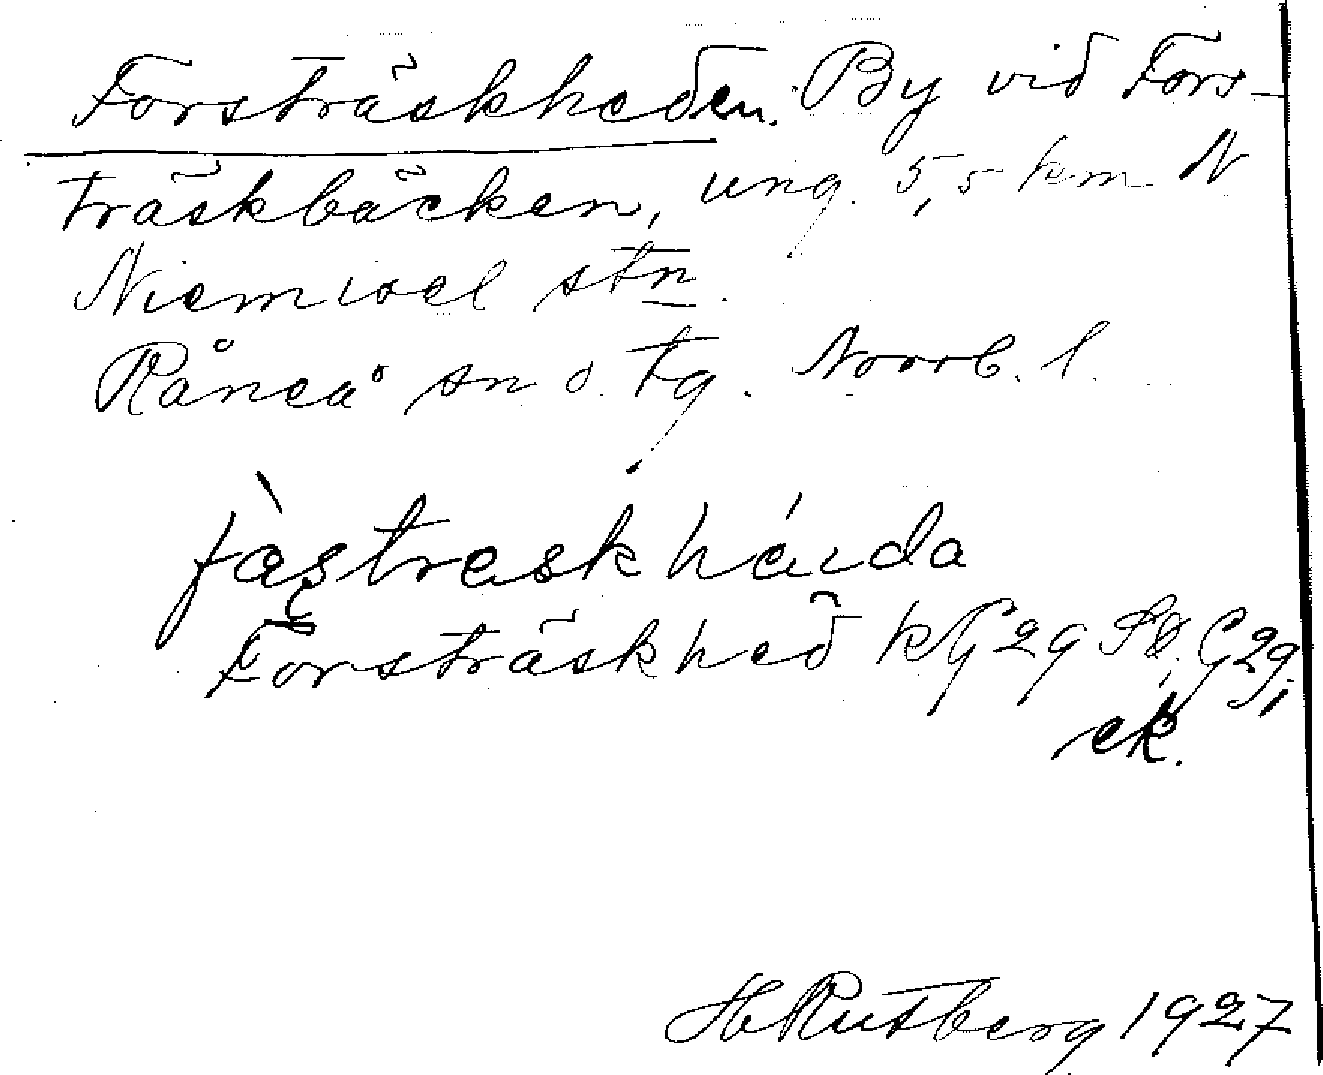 Forsträskheden. By vid Fors-
träskbäcken, ung. 5,5 km N
Niemisel stn.
Råneå sn o. tg. Norrb. l.
fàs̨traskháida
Forsträskhed kG 29 SO, G29;
ek.
H Rutberg 1927